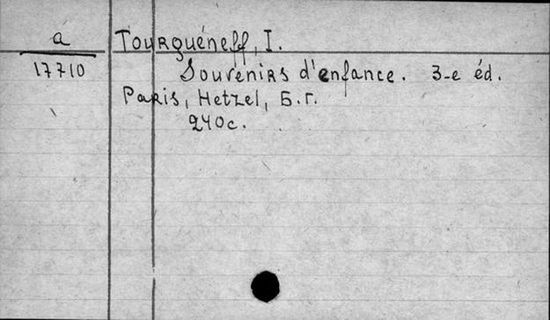 a
17710
Tourguéneff, I.
Souvenirs d'enfance. 3-e éd.
Paris, Hetzel, Б.г.
240с.